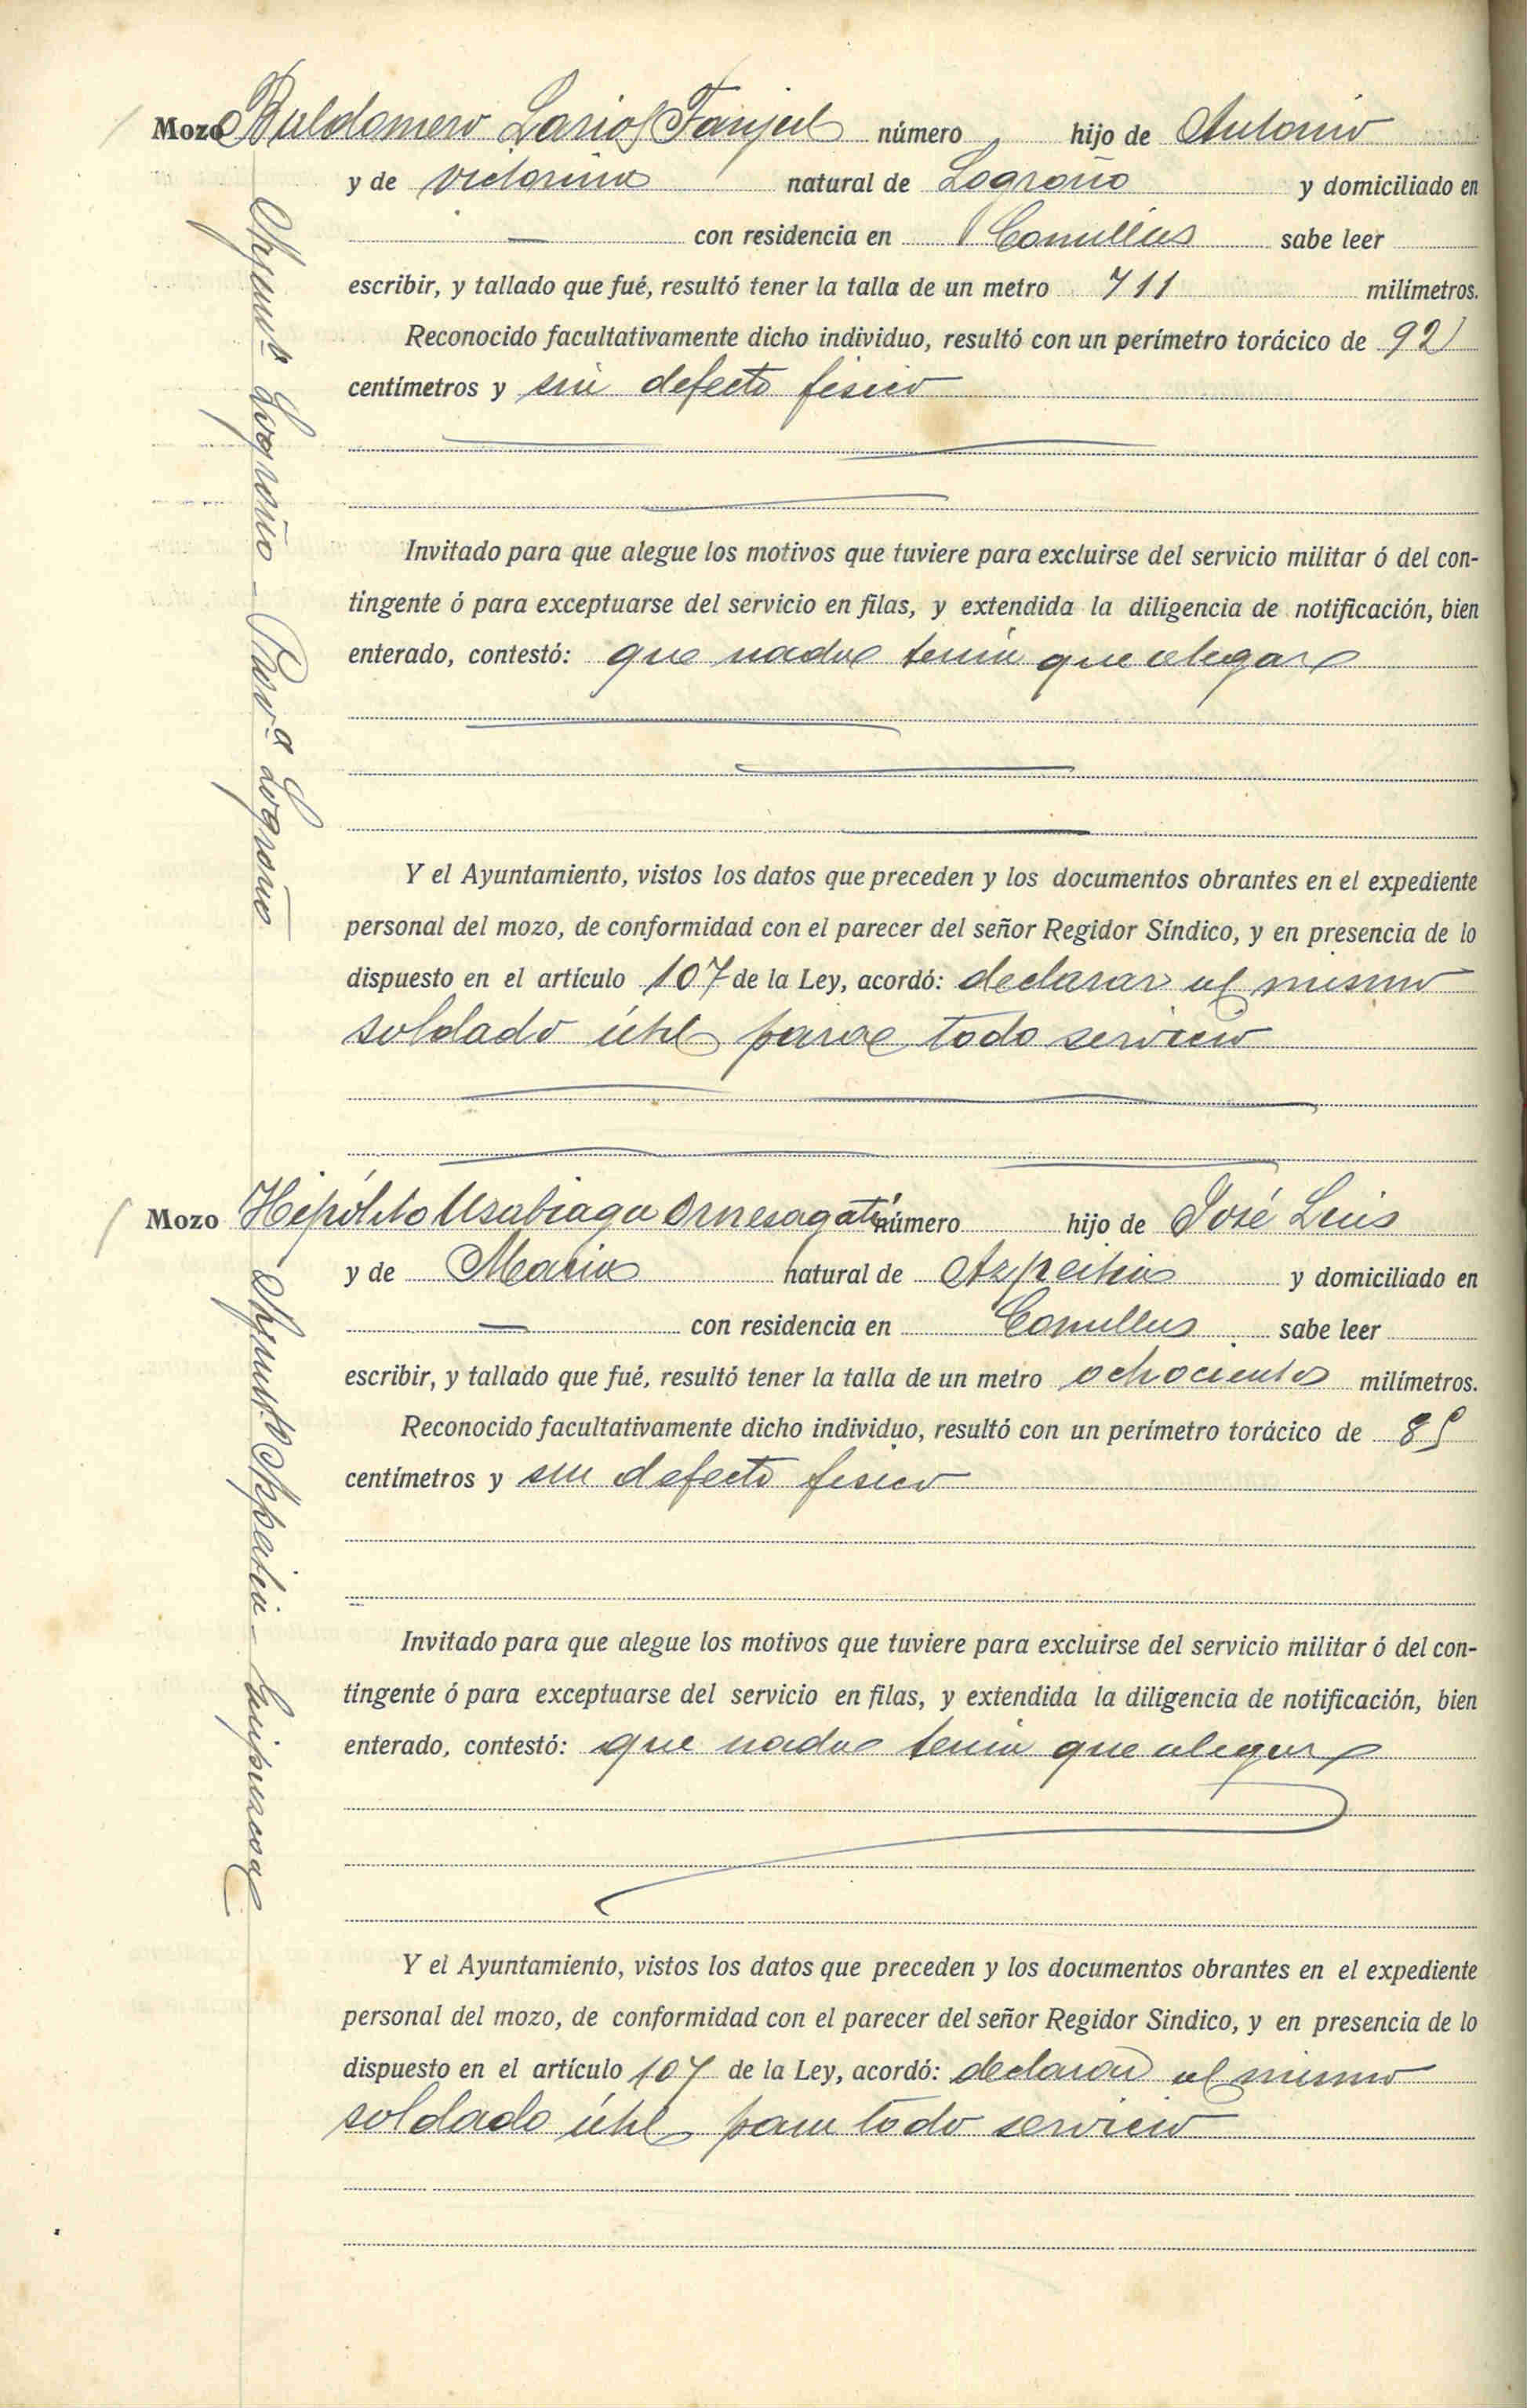 Mozo Baldomero Larios Fanjul número hijo de Antonio
y de Victorina natural de Logroño y domiciliado en
— con residencia en Comillas sabe leer
escribir, y tallado que fué, resultó tener la talla de un metro 711 milímetros.
Reconocido facultativamente dicho individuo, resultó con un perímetro torácico de 92
centímetros y sin defecto fisico
Invitado para que alegue los motivos que tuviere para excluirse del servicio militar ó del con-
tingente ó para exceptuarse del servicio en filas, y extendida la diligencia de notificación, bien
enterado, contestó: que nada tenia que alegar
Y el Ayuntamiento, vistos los datos que preceden y los documentos obrantes en el expediente
personal del mozo, de conformidad con el parecer del señor Regidor Síndico, y en presencia de lo
dispuesto en el artículo 107 de la Ley, acordó: declarar al mismo
soldado útil para todo servicio
Ayunt.º Logroño - Prov.ª Logroño
Mozo Hipólito Usabiaga número hijo de José Luis
y de Maria natural de Azpeitia y domiciliado en
— con residencia en Comillas sabe leer
escribir, y tallado que fué, resultó tener la talla de un metro ochocientos milímetros.
Reconocido facultativamente dicho individuo, resultó con un perímetro torácico de 85
centímetros y sin defecto fisico
Invitado para que alegue los motivos que tuviere para excluirse del servicio militar ó del con-
tingente ó para exceptuarse del servicio en filas, y extendida la diligencia de notificación, bien
enterado, contestó: que nada tenia que alegar
Y el Ayuntamiento, vistos los datos que preceden y los documentos obrantes en el expediente
personal del mozo, de conformidad con el parecer del señor Regidor Sindico, y en presencia de lo
dispuesto en el artículo 107 de la Ley, acordó: declarar al mismo
soldado útil para todo servicio
Ayunt.º Azpeitia - Guipuzcoa